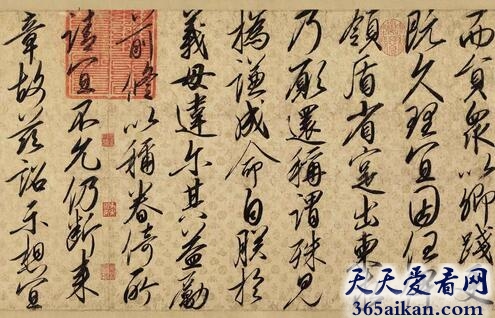 而員衆以卿踐更
既久理宜因任
領盾省寔出柬
乃願還稱謂殊見
撝謙成命自朕於
義毋違尔其益勵
前修以稱眷倚所
請宜不允仍斷来
章故兹詔示想宜
天天爱看网
365aikan.com